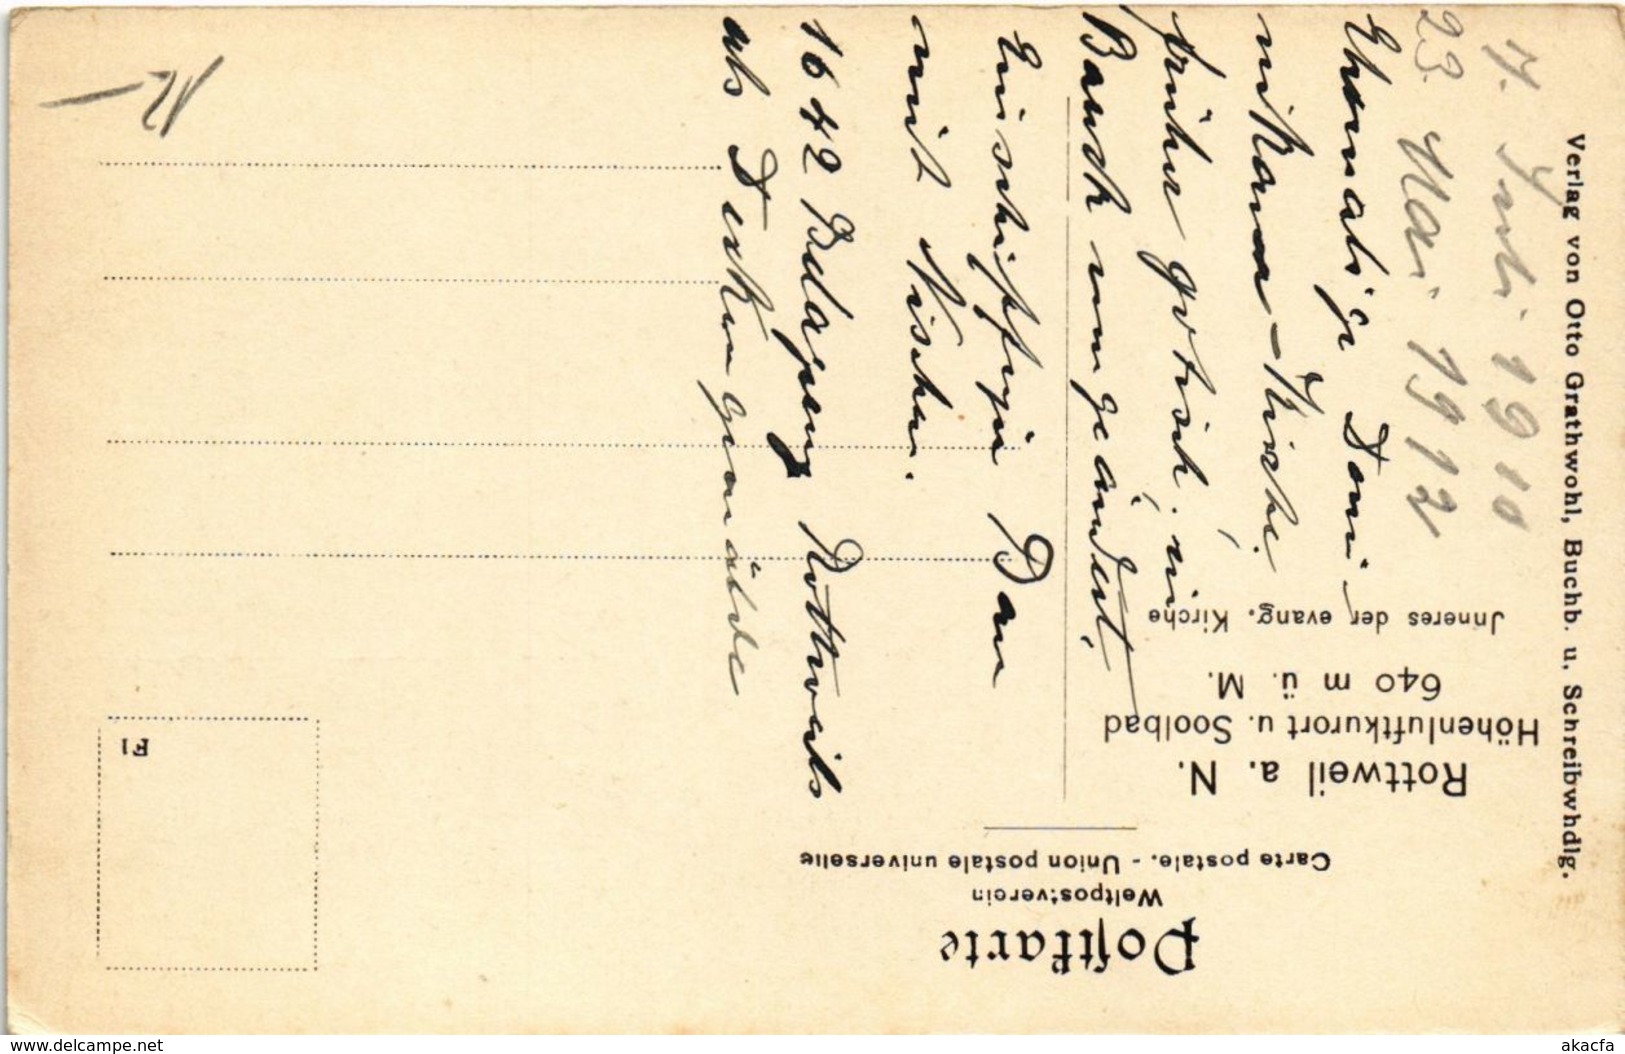 Postkarte
Weltpostverein
Carte postale. - Union postale universelle
Rottweil a. N.
Höhenluftkurort u. Soolbad
640 m ü. M.
Jnneres der evang. Kirche
Verlag von Otto Grathwohl, Buchb. u. Schreibwhdlg.
F1
7. Juli 1910
23. Mai 1912
Ehemalige Domi-
nikaner-Kirche.
früher gotisch, in
Barock umgeändert,
Einschiffiger Bau
mit Nischen.
1642 Belagerung Rottweils
als Deckengemälde
12 -
www.delcampe.net
akacfa